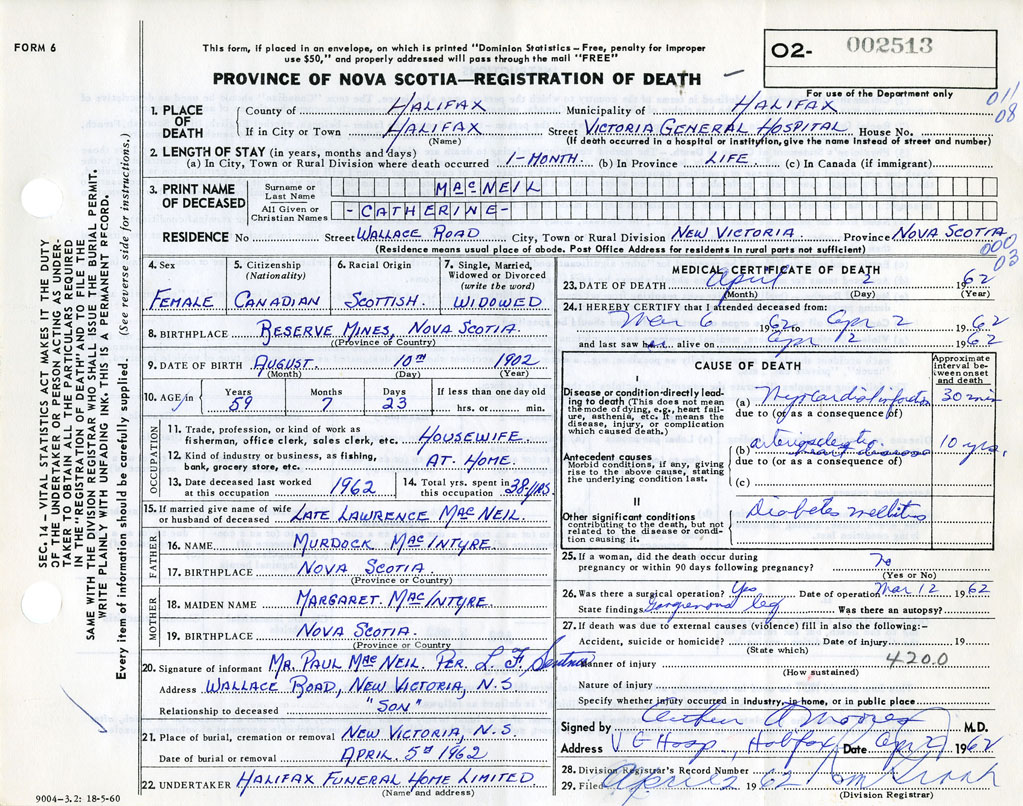 FORM 6
This form, if placed in an envelope, on which is printed "Dominion Statistics – Free, penalty for improper
use $50," and properly addressed will pass through the mail "FREE"
O2- 002513
PROVINCE OF NOVA SCOTIA—REGISTRATION OF DEATH
For use of the Department only
011
08
1. PLACE OF DEATH
County of HALIFAX Municipality of HALIFAX
If in City or Town HALIFAX Street VICTORIA GENERAL HOSPITAL House No.
(Name) (If death occurred in a hospital or institution, give the name instead of street and number)
2. LENGTH OF STAY (in years, months and days)
(a) In City, Town or Rural Division where death occurred 1-MONTH. (b) In Province LIFE (c) In Canada (if immigrant)
3. PRINT NAME OF DECEASED
Surname or Last Name MACNEIL
All Given or Christian Names -CATHERINE-
RESIDENCE No Street WALLACE ROAD City, Town or Rural Division NEW VICTORIA Province NOVA SCOTIA
(Residence means usual place of abode. Post Office Address for residents in rural parts not sufficient)
000
03
4. Sex
FEMALE
5. Citizenship
(Nationality)
CANADIAN
6. Racial Origin
SCOTTISH.
7. Single, Married,
Widowed or Divorced
(write the word)
WIDOWED
8. BIRTHPLACE RESERVE MINES, NOVA SCOTIA
(Province or Country)
9. DATE OF BIRTH AUGUST. 10TH 1902
(Month) (Day) (Year)
10. AGE in
Years Months Days If less than one day old
59 7 23 hrs. or min.
OCCUPATION
11. Trade, profession, or kind of work as
fisherman, office clerk, sales clerk, etc. HOUSEWIFE
12. Kind of industry or business, as fishing,
bank, grocery store, etc. AT. HOME.
13. Date deceased last worked
at this occupation 1962
14. Total yrs. spent in
this occupation 38-YRS.
15. If married give name of wife
or husband of deceased LATE LAWRENCE MACNEIL.
FATHER
16. NAME MURDOCK MACINTYRE.
17. BIRTHPLACE NOVA SCOTIA.
(Province or Country)
MOTHER
18. MAIDEN NAME MARGARET. MACINTYRE.
19. BIRTHPLACE NOVA SCOTIA.
(Province or Country)
20. Signature of informant MR. PAUL MACNEIL. PER. L. F.
Address WALLACE ROAD, NEW VICTORIA, N.S
Relationship to deceased "SON"
21. Place of burial, cremation or removal NEW VICTORIA, N.S.
Date of burial or removal APRIL. 5th 1962
22. UNDERTAKER HALIFAX FUNERAL HOME LIMITED
(Name and address)
9004-3.2: 18-5-60
MEDICAL CERTIFICATE OF DEATH
23. DATE OF DEATH April 2 1962
(Month) (Day) (Year)
24. I HEREBY CERTIFY that I attended deceased from:
Mar 6 1962 to Apr 2 1962
and last saw her alive on Apr 2 1962
CAUSE OF DEATH
Approximate
interval be-
tween onset
and death
I
Disease or condition directly lead-
ing to death (This does not mean
the mode of dying, e.g., heart fail-
ure, asthenia, etc. It means the
disease, injury, or complication
which caused death.)
(a) Myocardial infarction 30 min
due to (or as a consequence of)
Antecedent causes
Morbid conditions, if any, giving
rise to the above cause, stating
the underlying condition last.
(b) arteriosclerotic heart disease 10 yrs.
due to (or as a consequence of)
(c)
II
Other significant conditions
contributing to the death, but not
related to the disease or condi-
tion causing it.
Diabetes mellitus
25. If a woman, did the death occur during
pregnancy or within 90 days following pregnancy? No
(Yes or No)
26. Was there a surgical operation? Yes Date of operation Mar 12 1962
State findings Gangrenous leg Was there an autopsy?
27. If death was due to external causes (violence) fill in also the following:-
Accident, suicide or homicide? Date of injury 19
(State which)
420.0
Manner of injury
(How sustained)
Nature of injury
Specify whether injury occurred in industry, in home, or in public place
Signed by Arthur M.D.
Address V G Hosp, Halifax Date Apr 2 1962
28. Division Registrar's Record Number
29. Filed April 2 1962
(Division Registrar)
SEC. 14—VITAL STATISTICS ACT MAKES IT THE DUTY
OF THE UNDERTAKER OR PERSON ACTING AS UNDER-
TAKER TO OBTAIN ALL THE PARTICULARS REQUIRED
IN THE "REGISTRATION OF DEATH" AND TO FILE THE
SAME WITH THE DIVISION REGISTRAR WHO SHALL ISSUE THE BURIAL PERMIT.
WRITE PLAINLY WITH UNFADING INK. THIS IS A PERMANENT RECORD.
Every item of information should be carefully supplied. (See reverse side for instructions.)